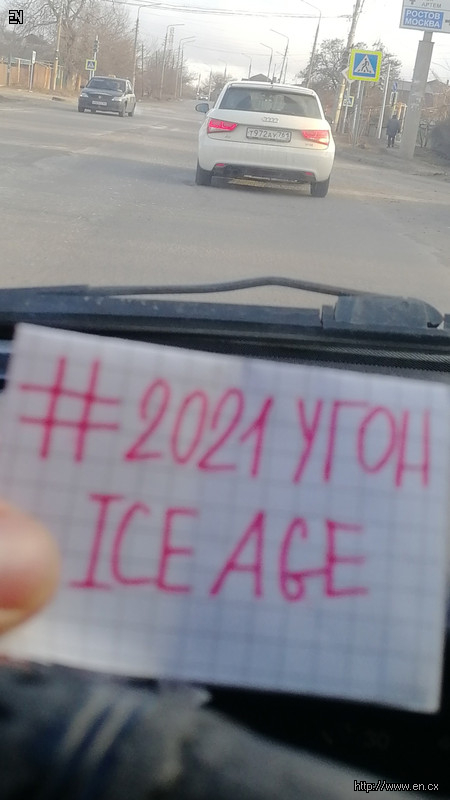 EN
АРТЕМ
РОСТОВ
МОСКВА
#2021 УГОН
ICE AGE
http://www.en.cx